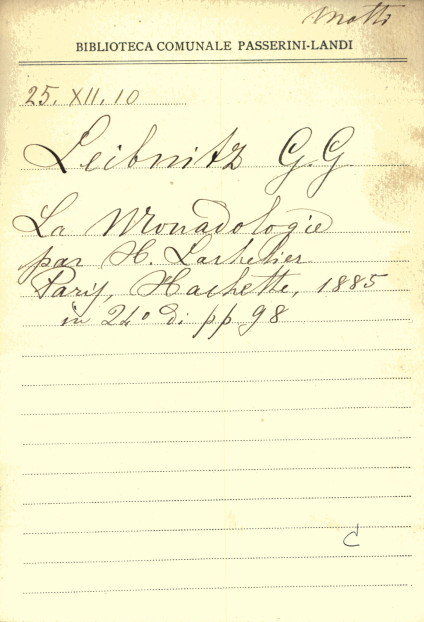 Motti
BIBLIOTECA COMUNALE PASSERINI-LANDI
25. XII. 10
Leibnitz G. G.
La Monadologie
par H. Lachelier
Paris, Hachette, 1885
in 24° di pp 98
C